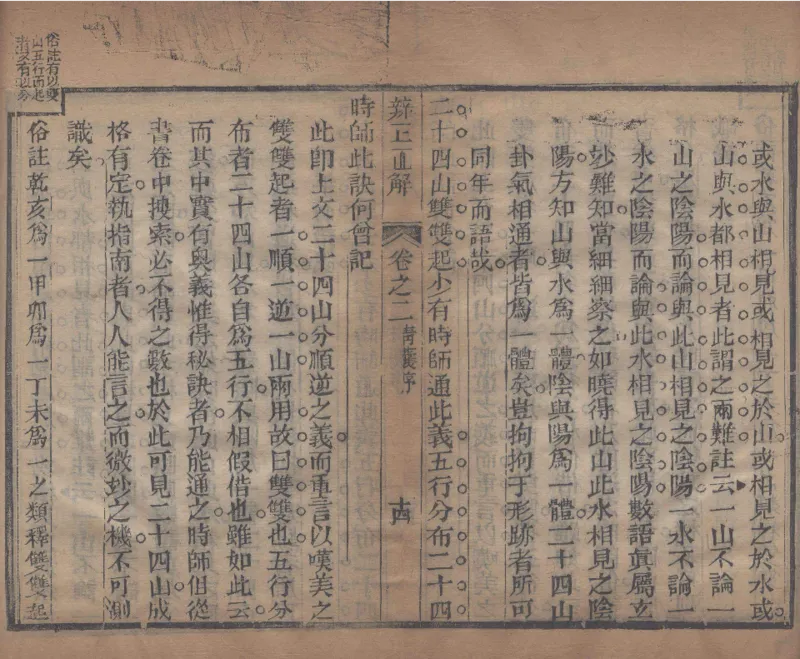 或水與山相見或相見之於山或相見之於水或
山與水都相見者此謂之兩難註云一山不論一
山之陰陽而論與此山相見之陰陽一水不論一
水之陰陽而論與此水相見之陰陽數語真屬玄
妙難知當細細察之如曉得此山此水相見之陰
陽方知山與水為一體陰與陽為一體二十四山
卦氣相通者皆為一體矣豈拘拘于形跡者所可
同年而語哉
二十四山雙雙起少有時師通此義五行分布二十四
辨正直解
卷之二
青囊序
十四
時師此訣何曾記
此即上文二十四山分順逆之義而重言以嘆美之
雙雙起者一順一逆一山兩用故曰雙雙也五行分
布者二十四山各自為五行不相假借也雖如此云
而其中實有奧義惟得秘訣者乃能通之時師但從
書卷中搜索必不得之數也於此可見二十四山成
格有定執指南者人人能言之而微妙之機不可測
識矣
俗註乾亥為一甲卯為一丁未為一之類釋雙雙起
俗註有以雙
山五行而起